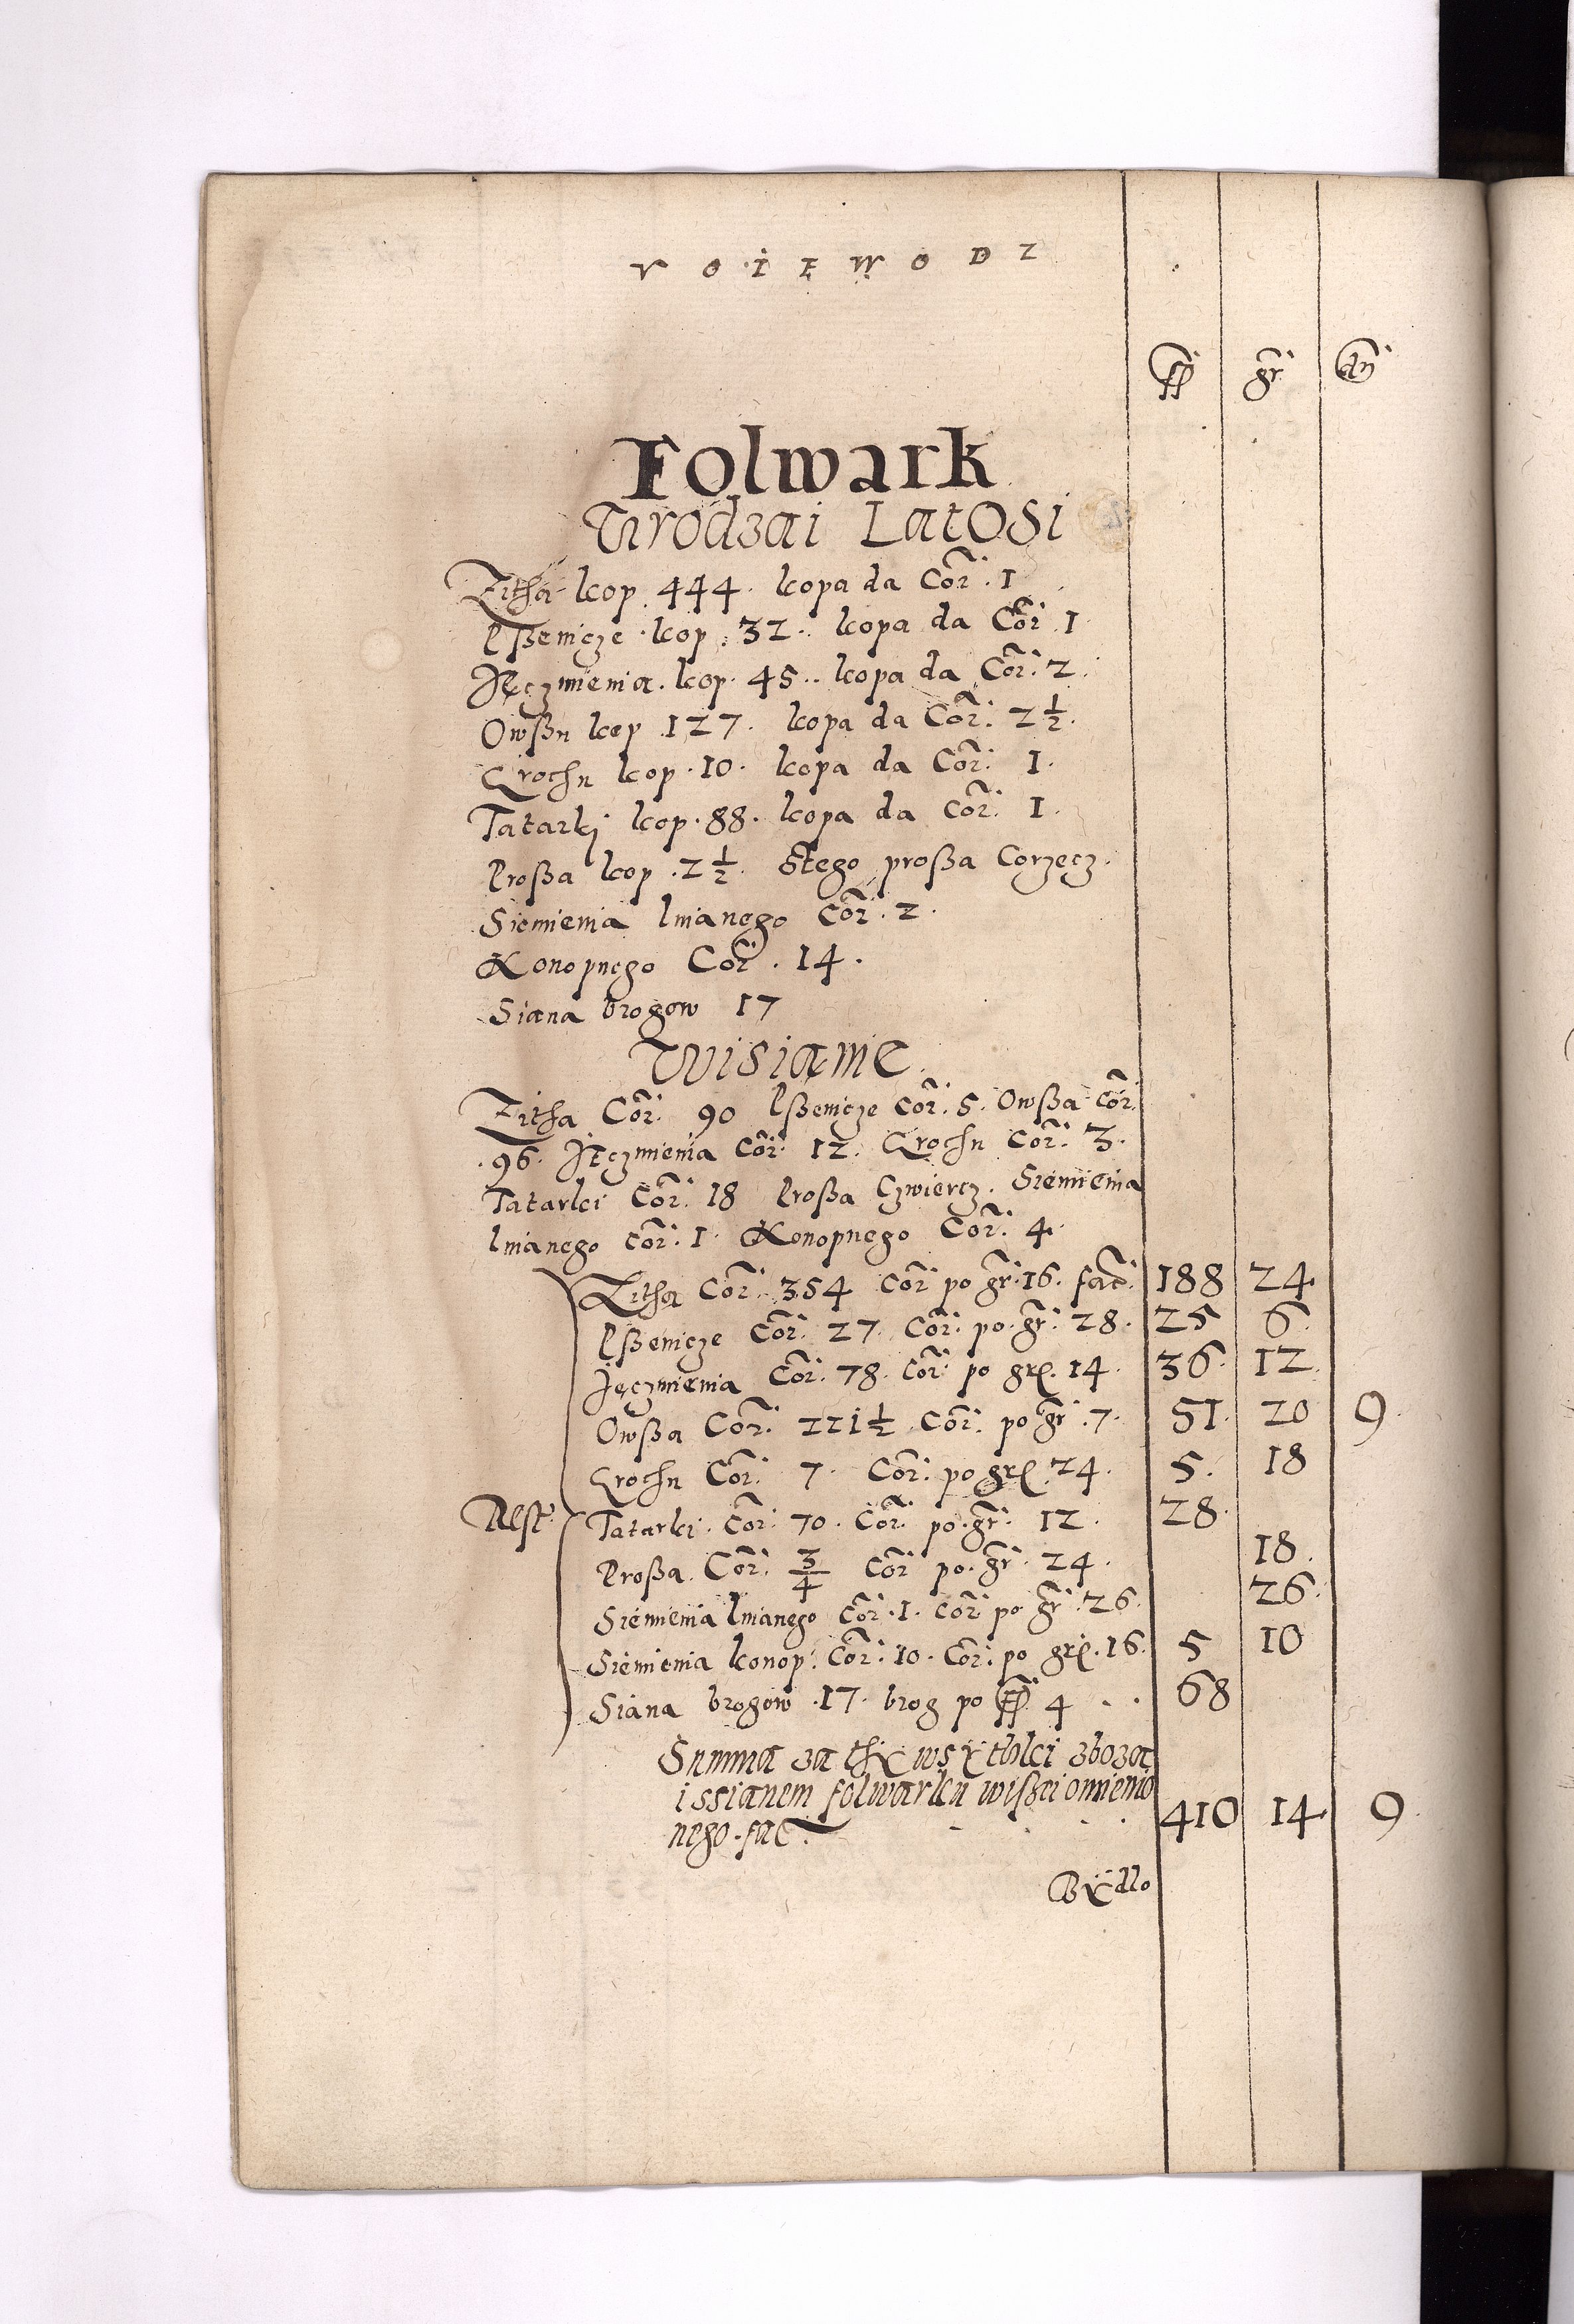 VOIEWODZ
ff gr dn
Folwark
Urodzai Latosi
Zitha kop 444. kopa da Cor. 1
Pßenicze kop. 32. kopa da Cor 1
Jęczmienia. kop. 45. kopa da Cor. 2.
Owßu kop 127. kopa da Cor. 2 1/2.
Grochu kop. 10. kopa da Cor. 1.
Tatarki kop. 88. kopa da Cor. 1.
Proßa kop. 2 1/2. Stego proßa Corzecz.
Siemienia lnianego Cor. 2.
Konopnego Cor. 14.
Siana brogow 17
Wisianie
Zitha Cor. 90 Pßenicze Cor. 5. Owßa Cor.
96. Jęczmienia Cor. 12. Grochu Cor. 3.
Tatarki Cor. 18 Proßa Czwiercz. Siemienia
lnianego Cor. 1. Konopnego Cor. 4.
Zitha Cor. 354 Cor po gr. 16. fac. 188 24.
Pßenicze Cor. 27. Cor. po. gr. 28. 25 6.
Jęczmienia Cor. 78. Cor. po gr. 14. 36. 12.
Owßa Cor. 221 1/2 Cor. po gr. 7. 51. 20 9.
Grochu Cor. 7. Cor. po gr. 24. 5. 18
Rest. Tatarki. Cor. 70. Cor. po. gr. 12. 28.
Proßa. Cor. 3/4 Cor po. gr. 24. 18.
Siemienia lnianego Cor. 1. Cor. po gr. 26. 26.
Siemienia konop. Cor. 10. Cor. po gr. 16. 5 10
Siana brogow. 17. brog po ff 4 . . 68
Summa za thÿ wsÿtkki zboza
i ssianem folwarku wißei omienio
nego. fac. 410 14. 9.
Bÿdlo